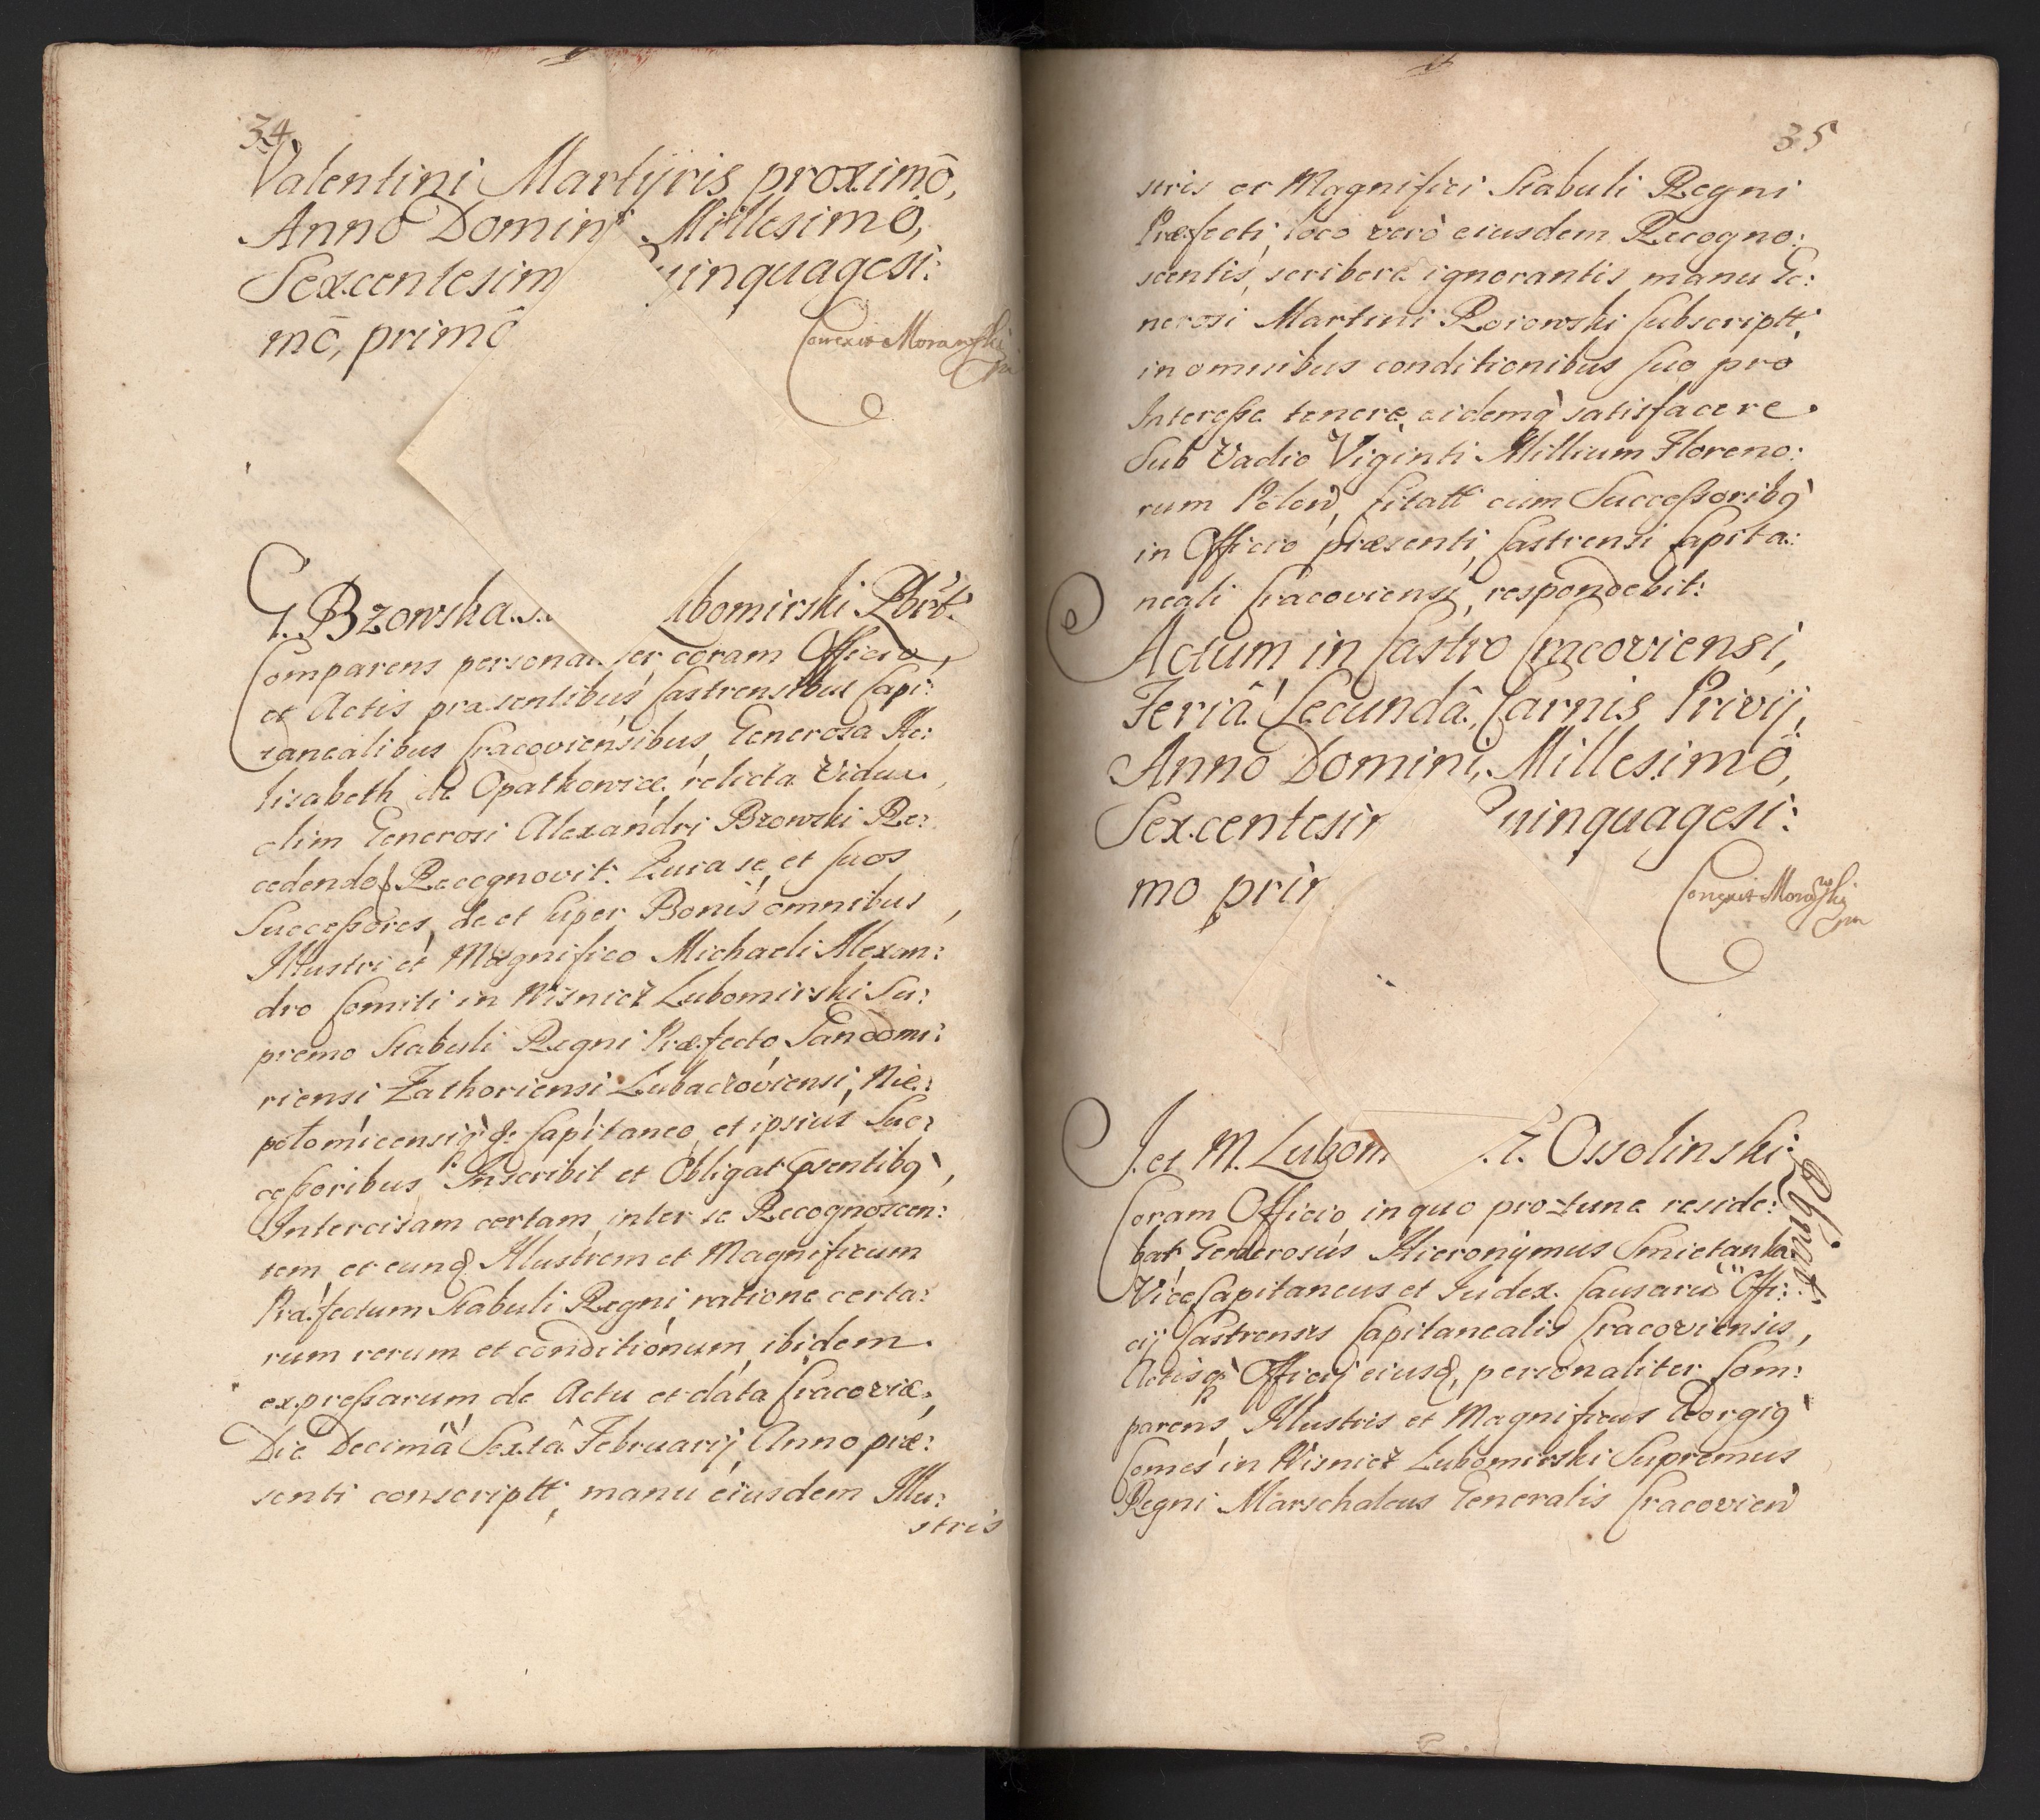 34
Valentini Martyris proximō,
Anno Domini Millesimō,
Sexcentesim uinquagesi:
mō, primō
Correxit Morawski
G. Brzowska bomirski Obrt:
Comparens personal ter coram Officio,
et Actis præsentibus Castrensibus Capi:
tanealibus Cracoviensibus Generosa He:
lisabeth de Opatkowice, relicta Vidua,
olim Generosi Alexandri Brzowski Re:
cedendo Recognovit. Quia se et suos
Successores, de et super Bonis omnibus,
Illustri et Magnifico Michaeli Alexan:
dro Comiti in Wisnicz Lubomirski Su:
premo Stabuli Regni Præfecto Sandomi:
riensi Zathoriensi Lubaczoviensi, Nie:
polomicensiq̀ Capitaneo, et ipsius Suc:
cessoribus Inscribit et Obligat pꝛsentibꝯ,
Intercisam certam inter se Recognoscen:
tem et eund Illustrem et Magnificum
Præfectum Stabuli Regni, ratione certa:
rum rerum et conditionum ibidem.
expressarum de Actu et data Cracoviæ,
Die Decimâ Sextâ Februarij Anno præ:
senti conscriptt, manu eiusdem Illu:
stris
35
stris et Magnifici Stabuli Regni
Præfecti, loco verò eiusdem Recogno:
scentis, scribere ignorantis, manu Ge:
nerosi Martini Roiowski subscriptt,
in omnibus conditionibus suo pro
Interesse tenere, eidemq̀ satisfacere.
Sub Vadio Viginti Millium Floreno:
rum Polon, citatt cum Successoribꝯ
in Officio præsenti Castrensi Capita:
neali Cracoviensi, respondebit:
Actum in Castro Cracoviensi,
Feriâ Secundâ, Carnis Privij,
Anno Domini, Millesimō,
Sexcentesi uinquagesi:
mo pri
Correxit Morawski
I. et M. Lubom E. Ossolinski:
Obligat:
Coram Officio, in quo pro tunc reside:
bat, Generosus Hieronymus Smietanka
Vice Capitaneus et Iudex. Causarū Offi:
cij Castrensis Capitanealis Cracoviensis,
Actisq̀ Officij eiusd, personaliter Com:
parens Illustris et Magnificus Georgiꝯ
Comes in Wisnicz Lubomirski Supremus
Regni Marschalcus Generalis Cracovien